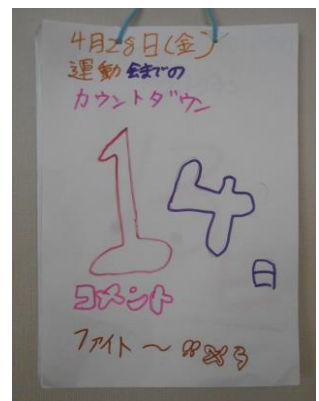 4月28日(金)
運動会までの
カウントダウン
14日
コメント
ファイト〜